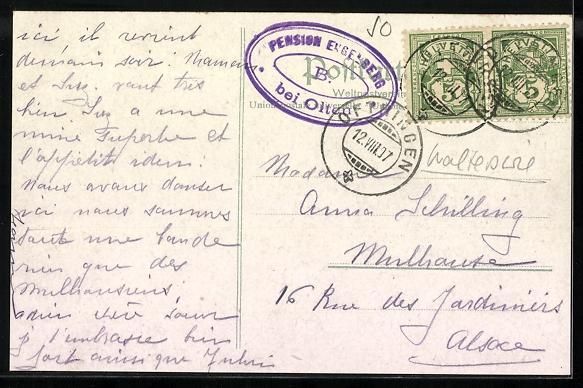 ici il revient
demain soir. Maman
et Suz. vont très
bien Suz a une
mine superbe et
l'appétit idem.
Nous avons danser
ici nous sommes
toute une bande
rien que des
Mulhousiens
adieu chère soeur
je t'embrasse bien
fort ainsi que
PENSION ENGELBERG
B
bei Olten
Postkarte
Weltpostverein
HELVETIA
5
HELVETIA
5
OFTRINGEN
12.VIII.07
50
Madame
Anna Schilling
Mulhouse
16 Rue des Jardiniers
Alsace